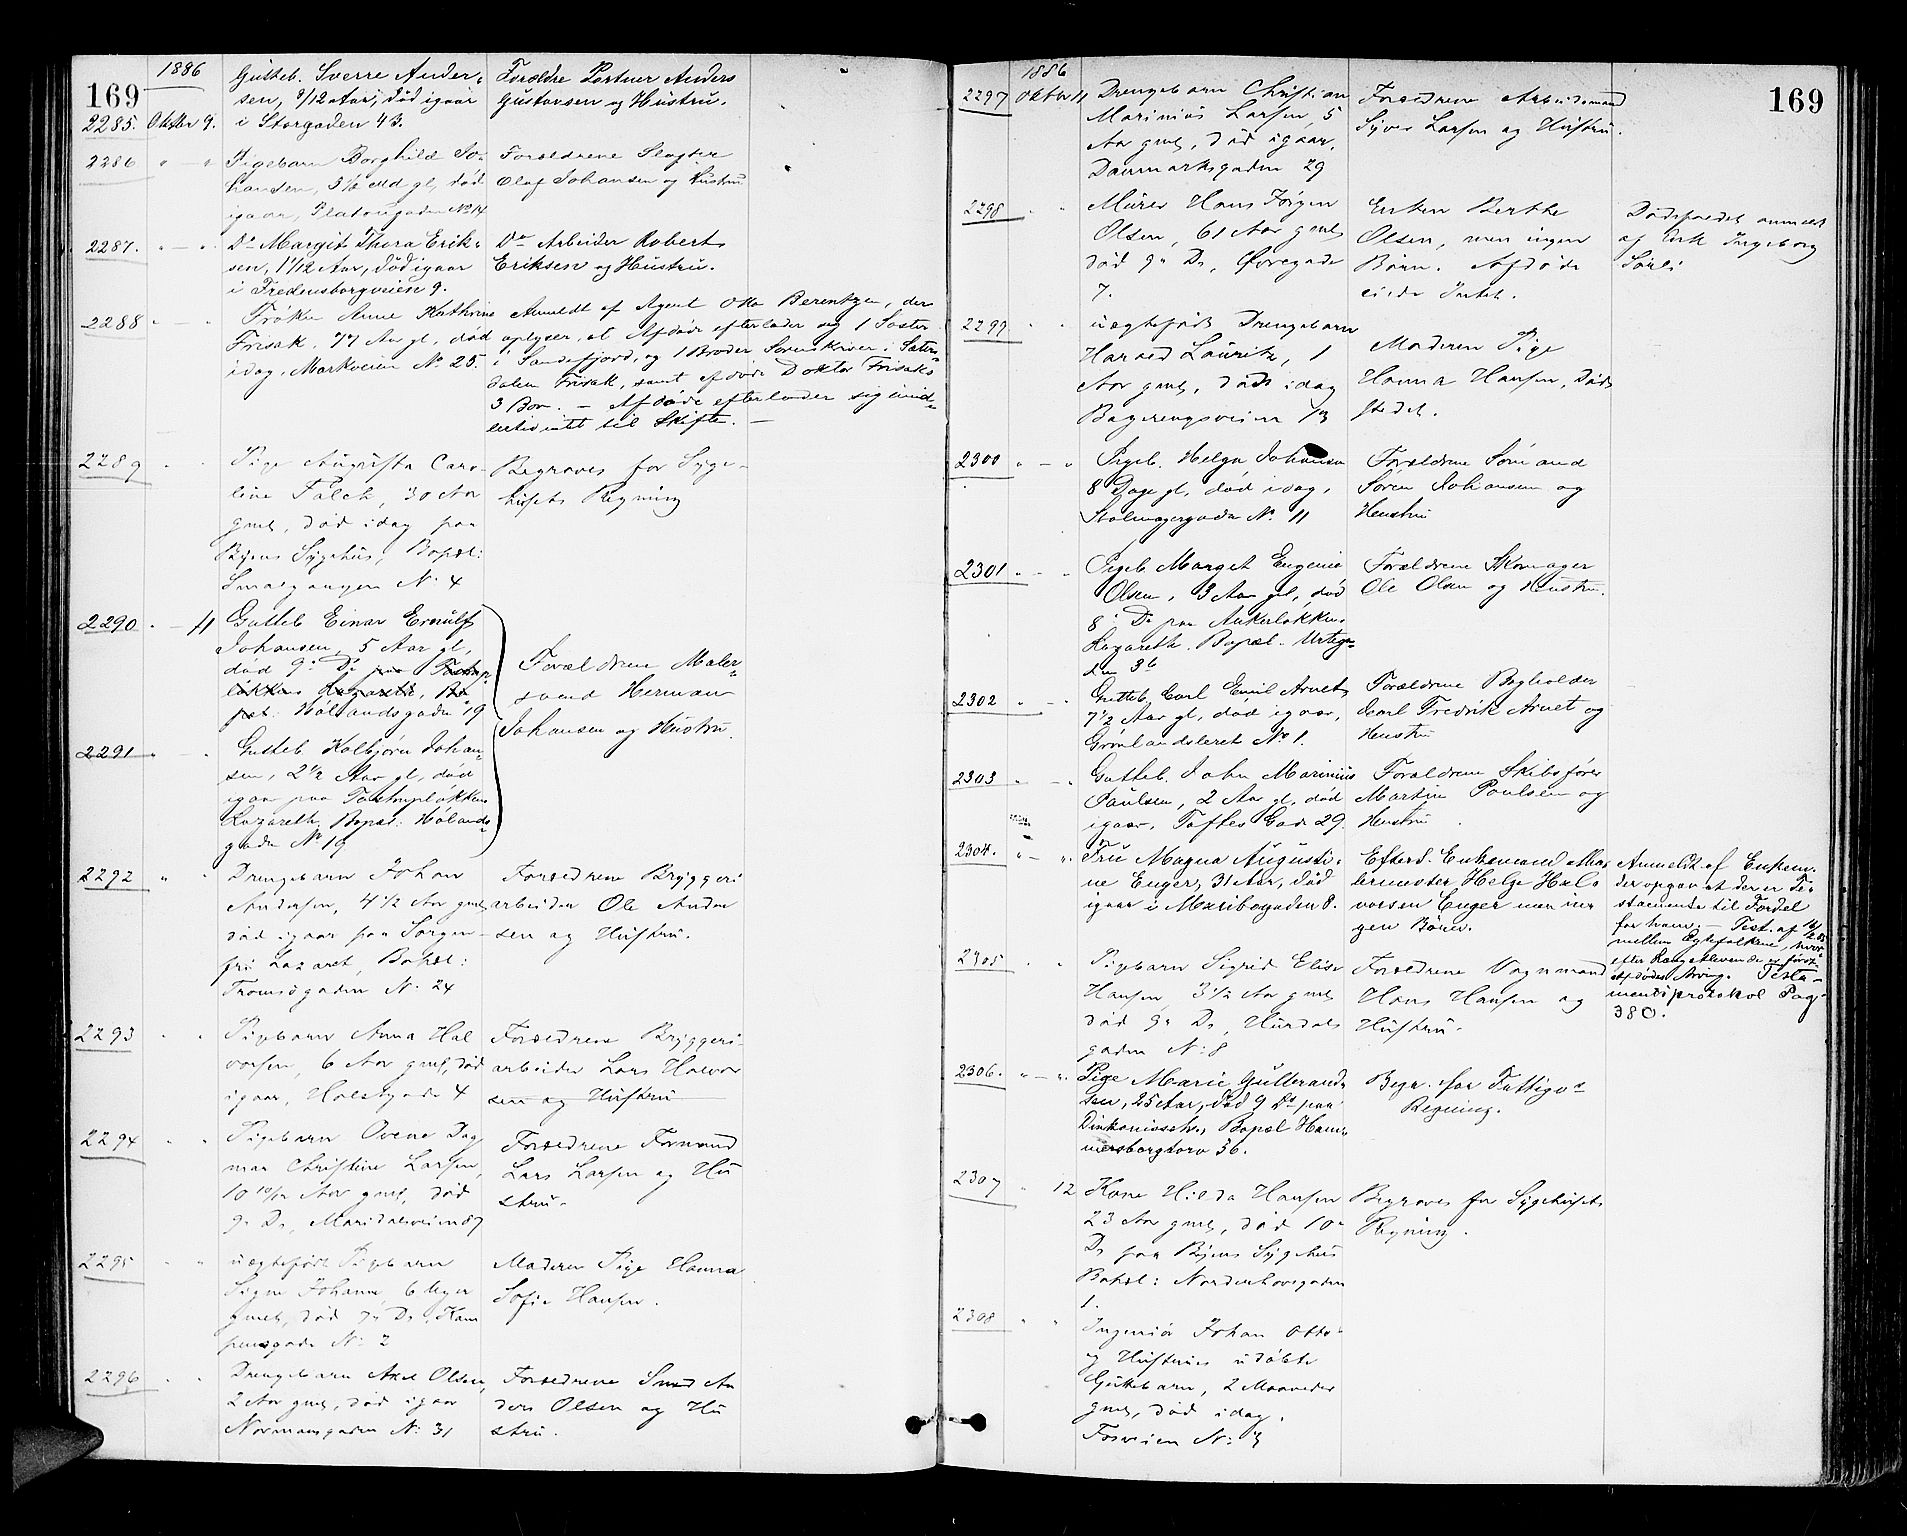 169
1886
2285. Oktbr 9.
Gutteb. Sverre Ander-
sen, 8/12 Aar, død igaar
i Storgaden 43.
Forældre Portner Anders
Gustavsen og Hustru.
2286 " — "
Pigebarn Borghild Jo-
hansen, 3 1/2 Md gl, død
igaar, Platougaden No 14
Forældrene Slagter
Olaf Johansen og Hustru
2287. " — "
Do Margit Thora Erik-
sen, 1 1/12 Aar, død igaar
i Fredensborgveien 9.
Do Arbeider Robert
Eriksen og Hustru.
2288 " — "
Frøken Anne Kathrine
Frisak, 77 Aar gl, død
idag, Markveien No 25.
Anmeldt af Agent Otto Berentzen, der
oplyser, at Afdøde efterlader sig 1 Søster
i Sandefjord, og 1 Broder, Sorenskriver i Sæters-
dalen Frisak, samt afdøde Doktor Frisaks
3 Børn. — Afdøde efterlader sig imid-
lertid intet til Skifte. —
2289 " "
Pige Augusta Caro-
line Falch, 30 Aar
gml, død idag paa
Byens Sygehus, Bopæl:
Smalgangen No 4
Begraves for Syge-
husets Regning
2290 " — 11
Gutteb Einar Ernulf
Johansen, 5 Aar gl,
død 9de Ds paa Tostrup-
løkkens Lazareth, Bo-
pæl: Hølandsgaden 19
Forældrene Maler-
svend Herman
Johansen og Hustru.
2291 " — "
Gutteb Kolbjørn Johan-
sen, 2 1/2 Aar gl, død
igaar paa Tostrupløkkens
Lazareth, Bopæl: Hølands-
gaden No 19
2292 " "
Drengebarn Johan
Andersen, 4 1/2 Aar gml,
død igaar paa Sorgen-
fri Lazaret, Bopæl:
Tromsøgaden No 24
Forældrene Bryggeri
arbeider Ole Ander
sen og Hustru.
2293 " "
Pigebarn Anna Hal
vorsen, 6 Aar gml, død
igaar, Holstgade 4
Forældrene Bryggeri-
arbeider Lars Halvor
sen og Hustru
2294 " "
Pigebarn Ovene Dag
mar Christine Larsen,
10 10/12 Aar gml, død
9de Ds, Maridalsveien 87
Forældrene Formand
Lars Larsen og Hu
stru.
2295 " "
uægtefødt Pigebarn
Signe Johanne, 6 Uger
gml, død 9de Ds, Kam
pensgade No 2
Moderen Pige Hanna
Sofie Hansen.
2296 " "
Drengebarn Axel Olsen,
2 Aar gml, død igaar
Normansgaden No 31
Forældrene Smed An
ders Olsen og Hu
stru.
169
1886
2297 Oktbr 11
Drengebarn Christian
Marinius Larsen, 5
Aar gml, død igaar,
Danmarksgaden 29
Forældrene Arbeidsmand
Syver Larsen og Hustru.
2298 " "
Murer Hans Jørgen
Olsen, 61 Aar gml,
død 9de Ds, Øvregade
7.
Enken Berthe
Olsen, men ingen
Børn. Afdøde
eiede Intet.
Dødsfaldet anmeldt
af Enk Ingeborg
Sørli
2299 " "
uægtefødt Drengebarn
Harald Lauritz, 1
Aar gml, død idag
Bagerengsveien 13
Moderen Pige
Hanna Hansen, Døds
stedet.
2300 " — "
Pigeb. Helga Johansen
8 Dage gl, død idag,
Stolmagergaden No 11
Forældrene Sømand
Søren Johansen og
Hustru
2301 " — "
Pigeb Margit Eugenie
Olsen, 3 Aar gl, død
8de Ds paa Ankerløkkens
Lazareth. Bopæl. Urtega-
den 36
Forældrene Skomager
Ole Olsen og Hustru.
2302 " — "
Gutteb. Carl Emil Arvet,
7 1/2 Aar gl, død igaar,
Grønlandsleret No 1.
Forældrene Bogholder
Carl Fredrik Arvet og
Hustru
2303 " — "
Gutteb. John Marinius
Paulsen, 2 Aar gl, død
igaar, Toftes Gade 29.
Forældrene Skibsfører
Martin Paulsen og
Hustru.
2304. " — ".
Fru Magna Augusti-
ne Enger, 31 Aar, død
igaar i Maribogaden 8.
Efterl. Enkemand Ma-
lermester Helge Hal-
vorsen Enger men in-
gen Børn.
Anmeldt af Enkem.
der opgav at der er Te-
stamente til Fordel
for ham. — Test. af
mellem Ægtefolkene, hvor-
efter Længstlevende er først-
Afdødes Arving. Testa-
mentsprotokol Pag.
380.
2305 " "
Pigebarn Sigrid Elise
Hansen, 3 1/2 Aar gml,
død 9de Ds, Hurdals
gaden No 8
Forældrene Vognmand
Hans Hansen og
Hustru.
2306. " — ".
Pige Marie Gulbrand-
sen, 25 Aar, død 9 Ds paa
Diakonissehs. Bopæl Ham-
mersborgtorv 36.
Begr. for Fattigv's
Regning.
2307 " 12
Kone Hilda Hansen
23 Aar gml, død 10de
Ds paa Byens Sygehus
Bopæl: Norderhovsgaden
1.
Begraves for Sygehusets
Regning.
2308 " "
Ingeniør Johan Otto
og Hustrues udøbte
Guttebarn, 2 Maaneder
gml, død idag.
Fosveien No 3